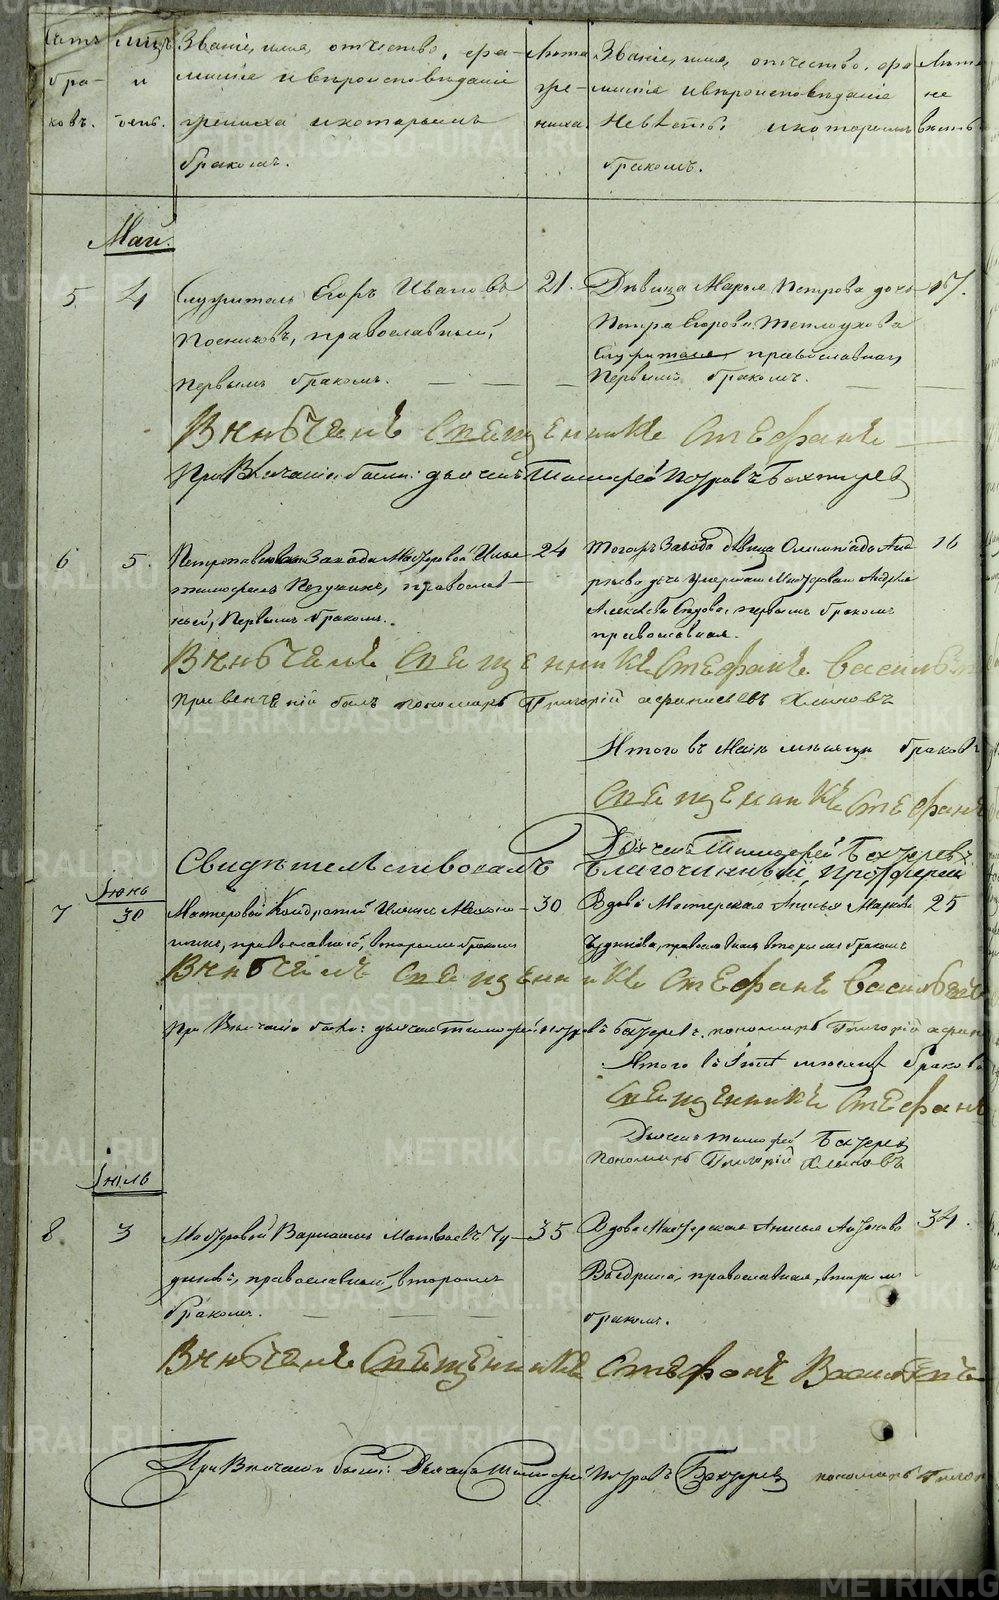 Счетъ
бра-
ковъ.
Мѣсяцъ
и
день.
Званіе, имя, отчество, фа-
милія и вѣроисповѣданіе
жениха и которымъ
бракомъ.
Лѣта
же-
ниха.
Званіе, имя, отчество, фа
милія и вѣроисповѣданіе
Невѣсты и которымъ
бракомъ.
Лѣта
не
вѣсты
Маи.
5
4
Служитель Егоръ Ивановъ
Посниковъ, православный,
Первымъ бракомъ.
21.
Дѣвица Марья Петрова дочь
Петра Егорова Теплоухова
Служителя, православная,
Первымъ бракомъ.
17.
Вѣнчалъ Священникъ Стефанъ
При Вѣнчаніи были: дьячекъ Тимофей Петровъ Бахтыревъ
6
5.
Петропавловскаго Завода Мастеровой Илья
Тимофеевъ, православ
ный, Первымъ бракомъ.
24
Тогожъ Завода дѣвица Олимпіада Анд
рѣева дочь умершаго Мастероваго Андрея
Алексѣева, первымъ бракомъ
православная.
16
Вѣнчалъ Священникъ Стефанъ Василь
При венчаніи былъ пономарь Григорій Афанасьевъ Хлыновъ
Итого въ Маіи мѣсяцѣ браковъ
Священникъ Стефанъ
Дьячекъ Тимофей Бахтыревъ
Свидѣтельствовалъ Благочинный, Протоіерей
Іюнь
7
30
Мастеровой Кондратій
православный, вторымъ бракомъ
30
Вдова Мастерская Анисья Маркова
Чудинова, православная вторымъ бракомъ
25
Вѣнчалъ Священникъ Стефанъ Васильевъ
При Вѣнчаніи были: дьячекъ Тимофей Петровъ Бахтыревъ, пономарь Григорій Афан
Итого въ Іюнѣ мѣсяцѣ браковъ
Священникъ Стефанъ
Дьячекъ Тимофей Бахтыревъ
Пономарь Григорій Хлыновъ
Іюль
8
3
Мастеровой Варламъ Матвѣевъ Чу
диновъ, православный, вторымъ
бракомъ.
35
Вдова Мастерская Анисья Антонова
православная, вторым
бракомъ.
34.
Вѣнчалъ Священникъ Стефанъ Васильевъ
При Вѣнчаніи были: Дьячекъ Тимофей Петровъ Бахтыревъ пономарь Григо
METRIKI.GASO-URAL.RU